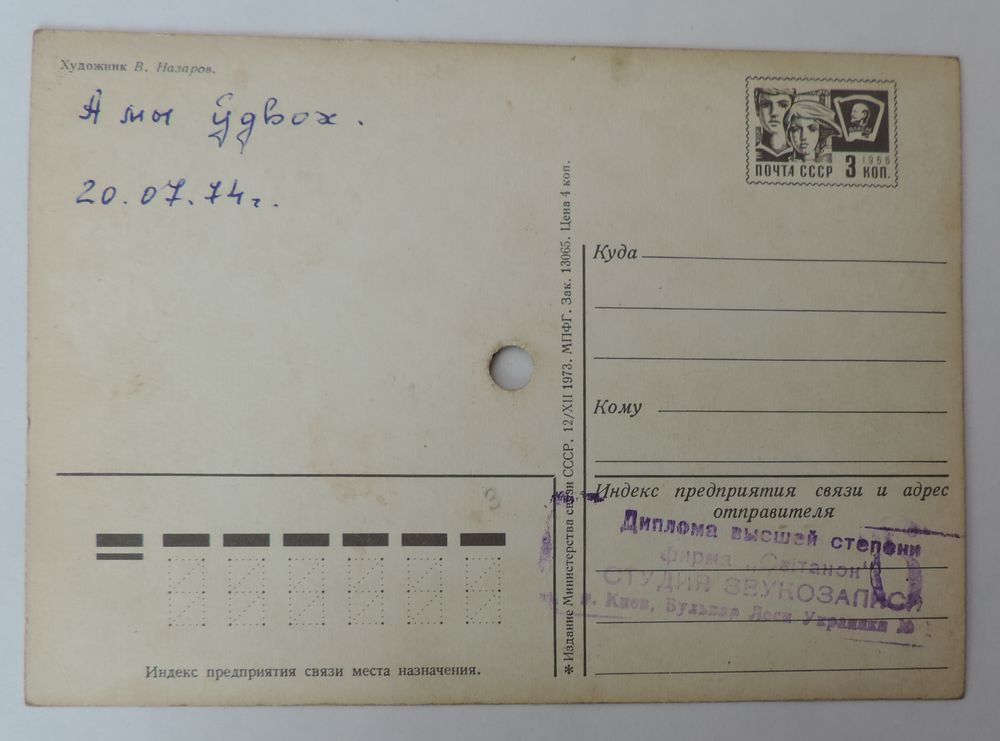 Художник В. Назаров.
А мы ўдвох.
20.07.74г.
1966
ПОЧТА СССР 3 КОП.
Куда
Кому
Индекс предприятия связи и адрес
отправителя
Диплома высшей степени
фирма „Світанок“
СТУДИЯ ЗВУКОЗАПИСИ
г. Киев, Бульвар Леси Украинки
✻ Издание Министерства связи СССР. 12/XII 1973. МПФГ. Зак. 13065. Цена 4 коп.
3
Индекс предприятия связи места назначения.